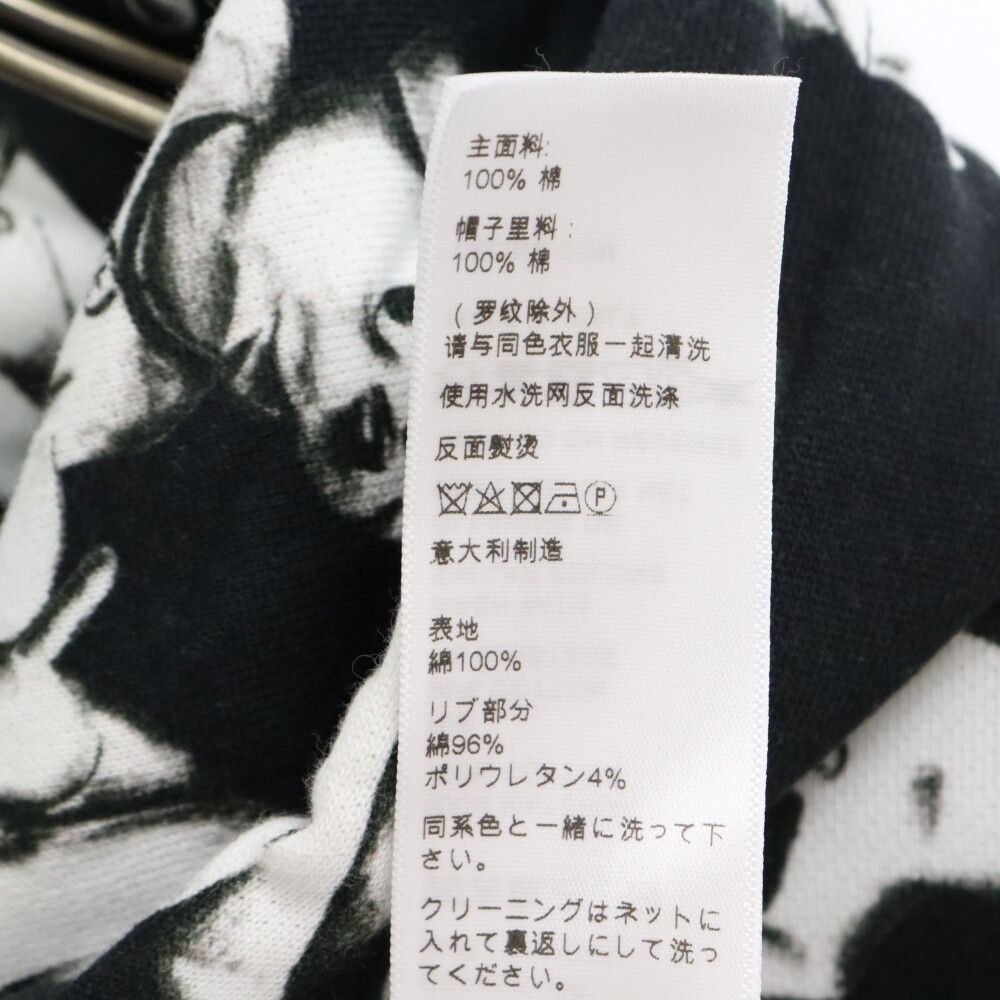 主面料:
100% 棉
帽子里料:
100% 棉
(罗纹除外)
请与同色衣服一起清洗
使用水洗网反面洗涤
反面熨烫
P
意大利制造
表地
綿100%
リブ部分
綿96%
ポリウレタン4%
同系色と一緒に洗って下
さい。
クリーニングはネットに
入れて裏返しにして洗っ
てください。